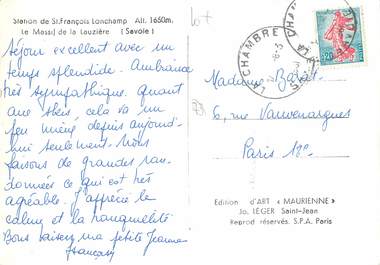 Station de St.François Lonchamp Alt. 1650m.
Le Massif de la Lauzière (Savoie)
Séjour excellent avec un
temps splendide. Ambiance
très sympathique. Quant
aux skis, cela va un
peu mieux depuis aujourd-
hui seulement. Nous
faisons de grandes ran-
données ce qui est très
agréable. J'apprécie le
calme et la tranquillité
Bons baisers, ma petite Jeanne
Françoise
LA CHAMBRE
0.20
Madame
6, rue Vauvenargues
Paris 18e
Edition d'ART « MAURIENNE »
Jo. LÉGER Saint-Jean
Reprod réservés. S.P.A. Paris